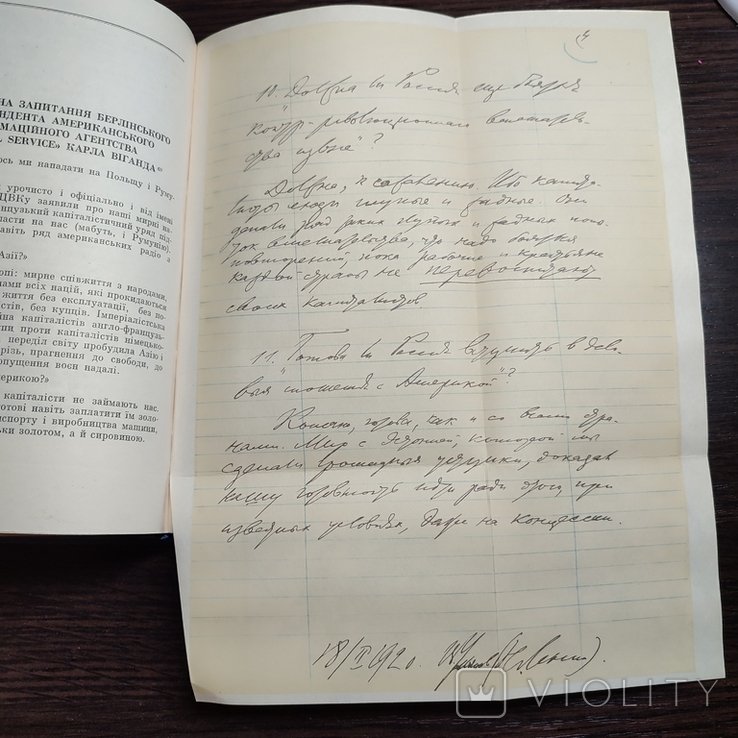 НА ЗАПИТАННЯ БЕРЛІНСЬКОГО
ИДЕНТА АМЕРИКАНСЬКОГО
МАЦІЙНОГО АГЕНТСТВА
L SERVICE» КАРЛА ВІГАНДА
ось ми нападати на Польщу і Руму-
урочисто і офіційно і від імені
ЦВКу заявили про наші мирні на-
нцузький капіталістичний уряд під-
пасти на нас (мабуть, і Румунію).
авіть ряд американських радіо з
Азії?»
опі: мирне співжиття з народами,
нами всіх націй, які прокидаються
життя без експлуатації, без по-
істів, без купців. Імперіалістська
йна капіталістів англо-французь-
пи проти капіталістів німецько-
переділ світу пробудила Азію і
різь, прагнення до свободи, до
опущення воєн надалі.
ерикою?»
капіталісти не займають нас.
готові навіть заплатити їм золо-
нспорту і виробництва машини,
ьки золотом, а й сировиною.
4
10. Должна ли Россия еще бояться
контр-революционного вмешатель-
ства извне"?
Должна, к сожалению. Ибо капита-
листы люди глупые и жадные. Они
сделали ряд таких глупых и жадных попы-
ток вмешательства, что надо бояться
повторений, пока рабочие и крестьяне
каждой страны не перевоспитают
своих капиталистов.
11. "Готова ли Россия вступить в дело-
вые сношения с Америкой"?
Конечно, готова, как и со всеми стра-
нами. Мир с Эстонией, которой мы
сделали громадные уступки, доказал
нашу готовность идти ради этого, при
известных условиях, даже на концессии.
18/II 1920. В. Ульянов (Н. Ленин)
VIOLITY